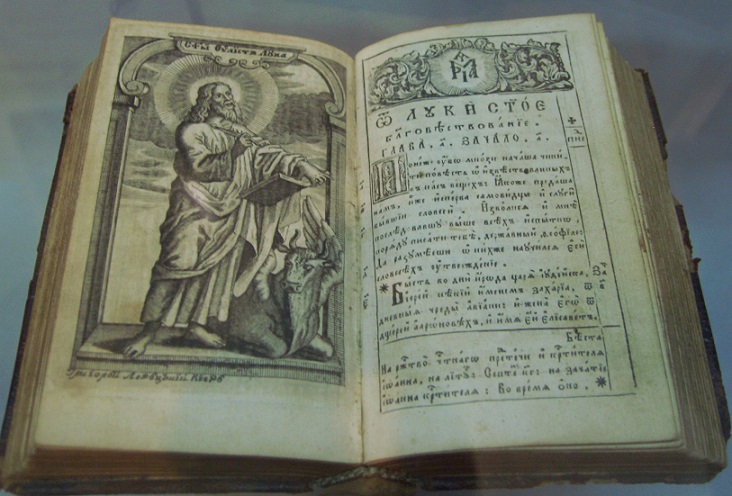 С҃ты́й Еѵⷢ҇листъ Лꙋка
Григорий Левицкий
МРІА
Ѿ ЛꙊКИ́ СТ҃О́Е
БЛ҃ГОВѢ́СТВОВАНЇЕ.
ГЛАВА̀, а҃. ЗАЧА́ЛО, а҃.
Поне́же ᲂу҆́бѡ мно́зи нача́ша чини́-
ти по́вѣсть ѡ҆ и҆звѣ́ствованныхъ
въ на́съ ве́щехъ: ꙗ҆́коже преда́ша
на́мъ, и҆̀же и҆спе́рва самови́дцы и҆ слꙋги̑
бы́вшїи словесѐ. И҆зво́лисѧ и҆ мнѣ̀
послѣ́довавшꙋ вы́ше всѣ̑хъ и҆спы́тнѡ,
порѧ́дꙋ писа́ти тебѣ̀, держа́вный ѳео́филе.
Да разꙋмѣ́еши ѡ҆ ни́хже наꙋчи́лсѧ є҆сѝ
словесѣ́хъ ᲂу҆твержде́нїе.
Бы́сть во дни̑ и҆́рѡда царѧ̀ і҆ꙋде́йска,
і҆ере́й нѣ́кїй и҆́менемъ заха́рїа, ѿ
дне́вныѧ чреды̀ а҆вїа́ни: и҆ жена̀ є҆гѡ̀ ѿ
дще́рей а҆арѡ́новѣхъ, и҆ и҆́мѧ є҆́й є҆лїсаве́тъ.
На рж҃тво̀ чⷭ҇тна́гѡ прⷣте́чи и҆ крⷭ҇ти́телѧ
і҆ѡа́нна, на лїтꙋ: на зача́тїе
і҆ѡа́нна крⷭ҇ти́телѧ: Во вре́мѧ ѻ҆́но.